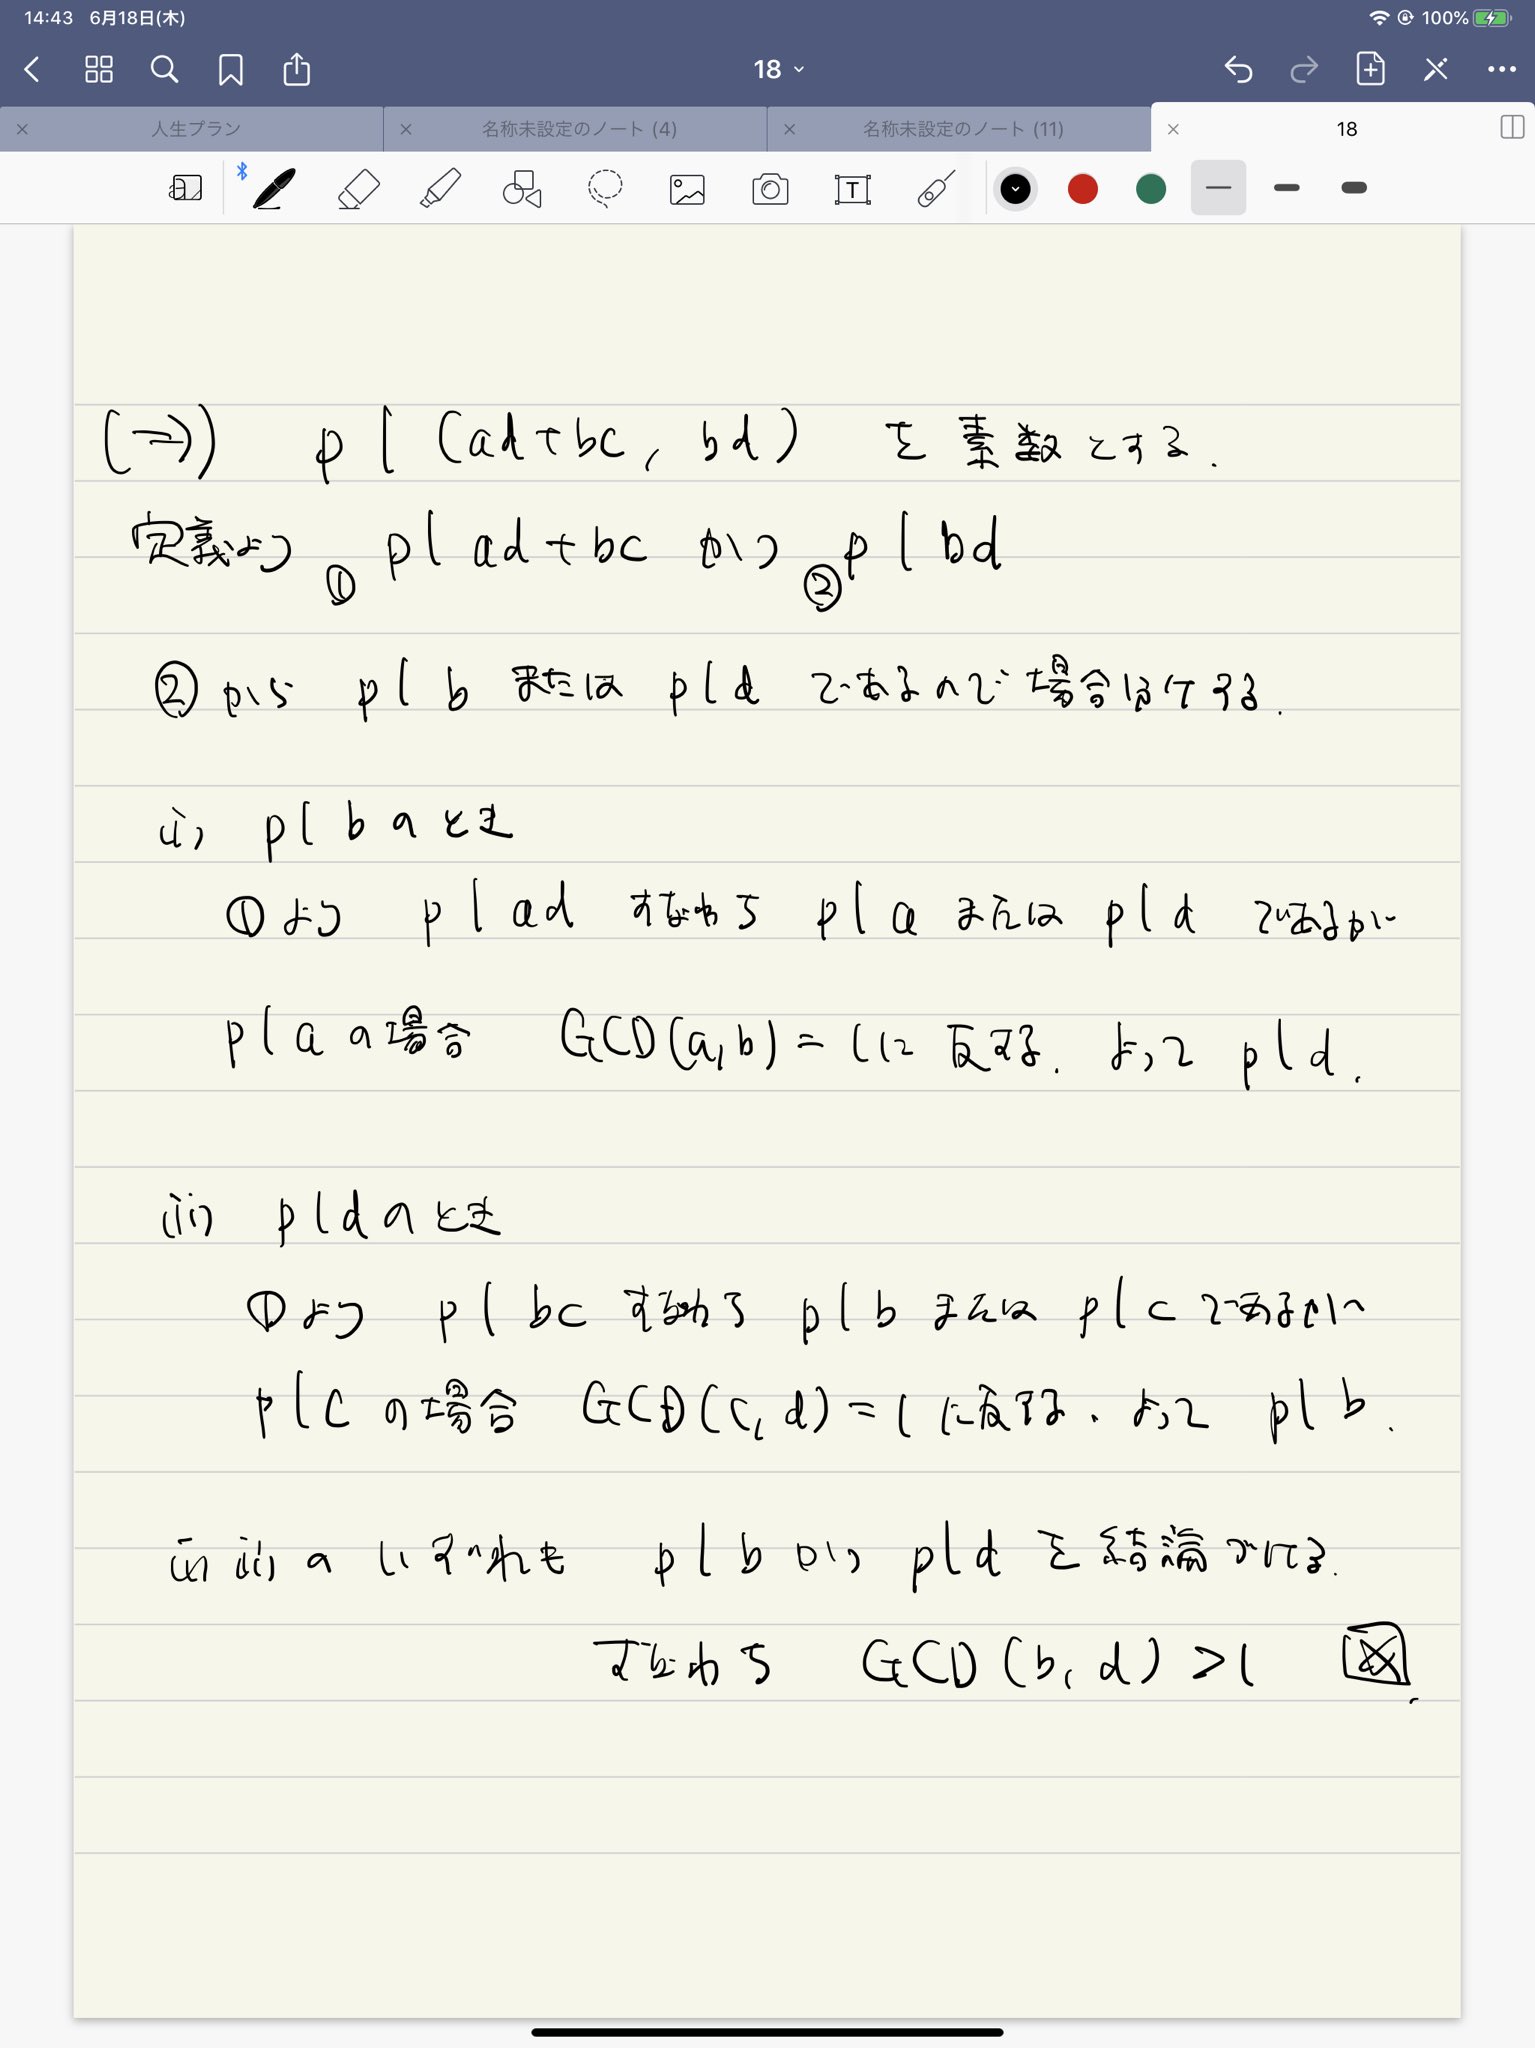 14:43 6月18日(木)
100%
18
人生プラン
名称未設定のノート (4)
名称未設定のノート (11)
18
(⇒) p | (ad+bc, bd) を素数とする.
定義より ① p | ad+bc かつ ② p | bd
②から p | b または p | d であるので場合分けする.
(i) p | b のとき
①より p | ad すなわち p | a または p | d であるが
p | a の場合 GCD(a,b)=1に反する. よって p | d.
(ii) p | d のとき
①より p | bc すなわち p | b または p | c であるが
p | c の場合 GCD(c,d)=1に反する. よって p | b.
(i) (ii) のいずれも p | b かつ p | d を結論づける.
すなわち GCD(b,d)>1